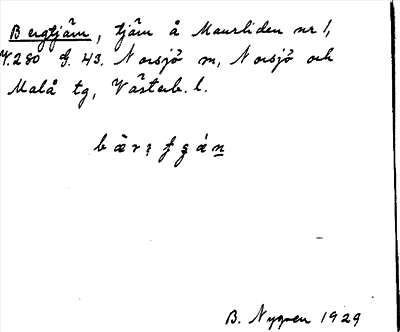 Bergtjärn, tjärn å Maurliden nr 1,
V.280 g. 43. Norsjö sn, Norsjö och
Malå tg, Västerb. l.
B. Nygren 1929